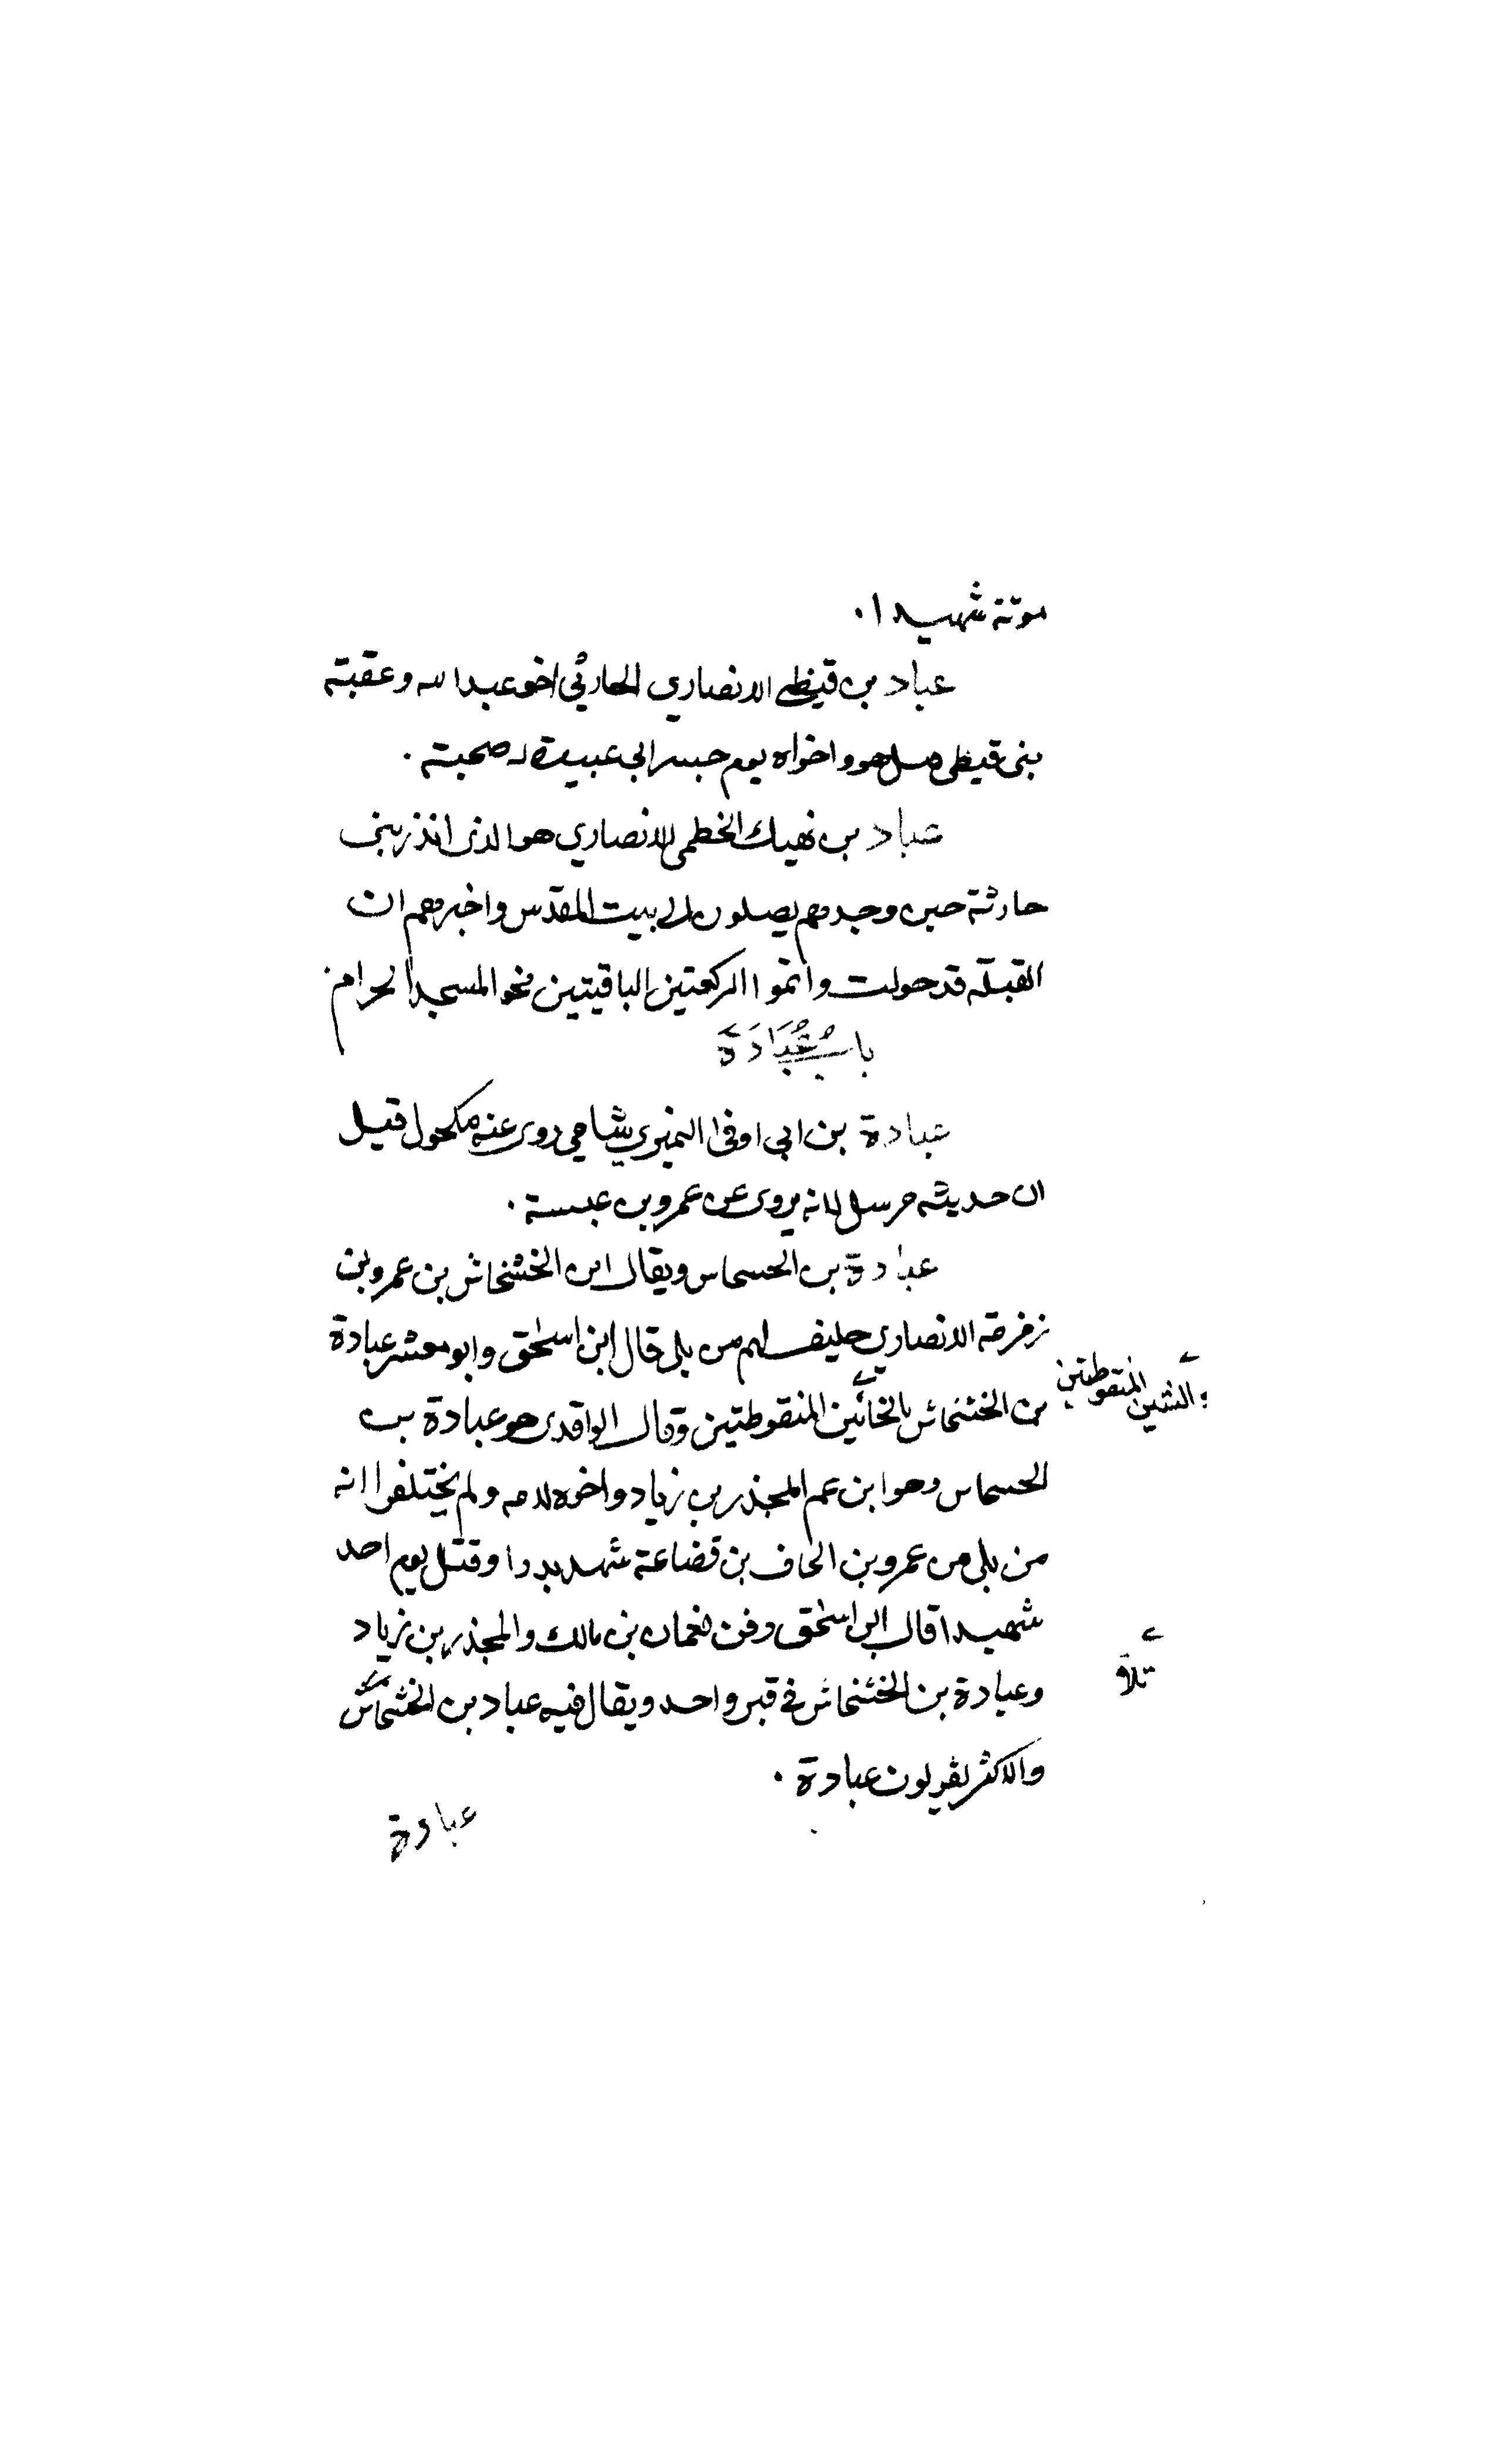 موتة شهيدا .
عباد بن قيظي الانصاري الحارثي اخو عبد الله وعقبة
بنى قيظى قتل هو واخواه يوم جسر ابى عبيدة له صحبة .
عباد بن نهيك الخطمى الانصاري هو الذى انذر بنى
حارثة حين وجدهم يصلون الى بيت المقدس واخبرهم ان
القبلة قد حولت واتموا الركعتين الباقيتين نحو المسجد الحرام .
باب عُبَادَة
عبادة بن ابى اوفى النميري شامي روى عنه مكحول قيل
ان حديثه مرسل لانه يروى عن عمرو بن عبسة .
عبادة بن الحسحاس ويقال ابن الخشخاش بن عمرو بن
زمزمة الانصاري حليف لهم من بلى قال ابن اسحق وابو معشر عبادة
بن الخشخاش بالخائين المنقوطتين وقال الواقدى هو عبادة بن
والشين المنقوطتين
الحسحاس وهو ابن عم المجذر بن زياد واخوه لامه ولم يختلفوا انه
من بلى من عمرو بن الحاف بن قضاعة شهد بدرا وقتل يوم احد
شهيدا قال ابن اسحق دفن نعمان بن مالك والمجذر بن زياد
وعبادة بن الخشخاش في قبر واحد ويقال فيه عباد بن الخشخاش
بلا
والاكثر يقولون عبادة .
عبادة